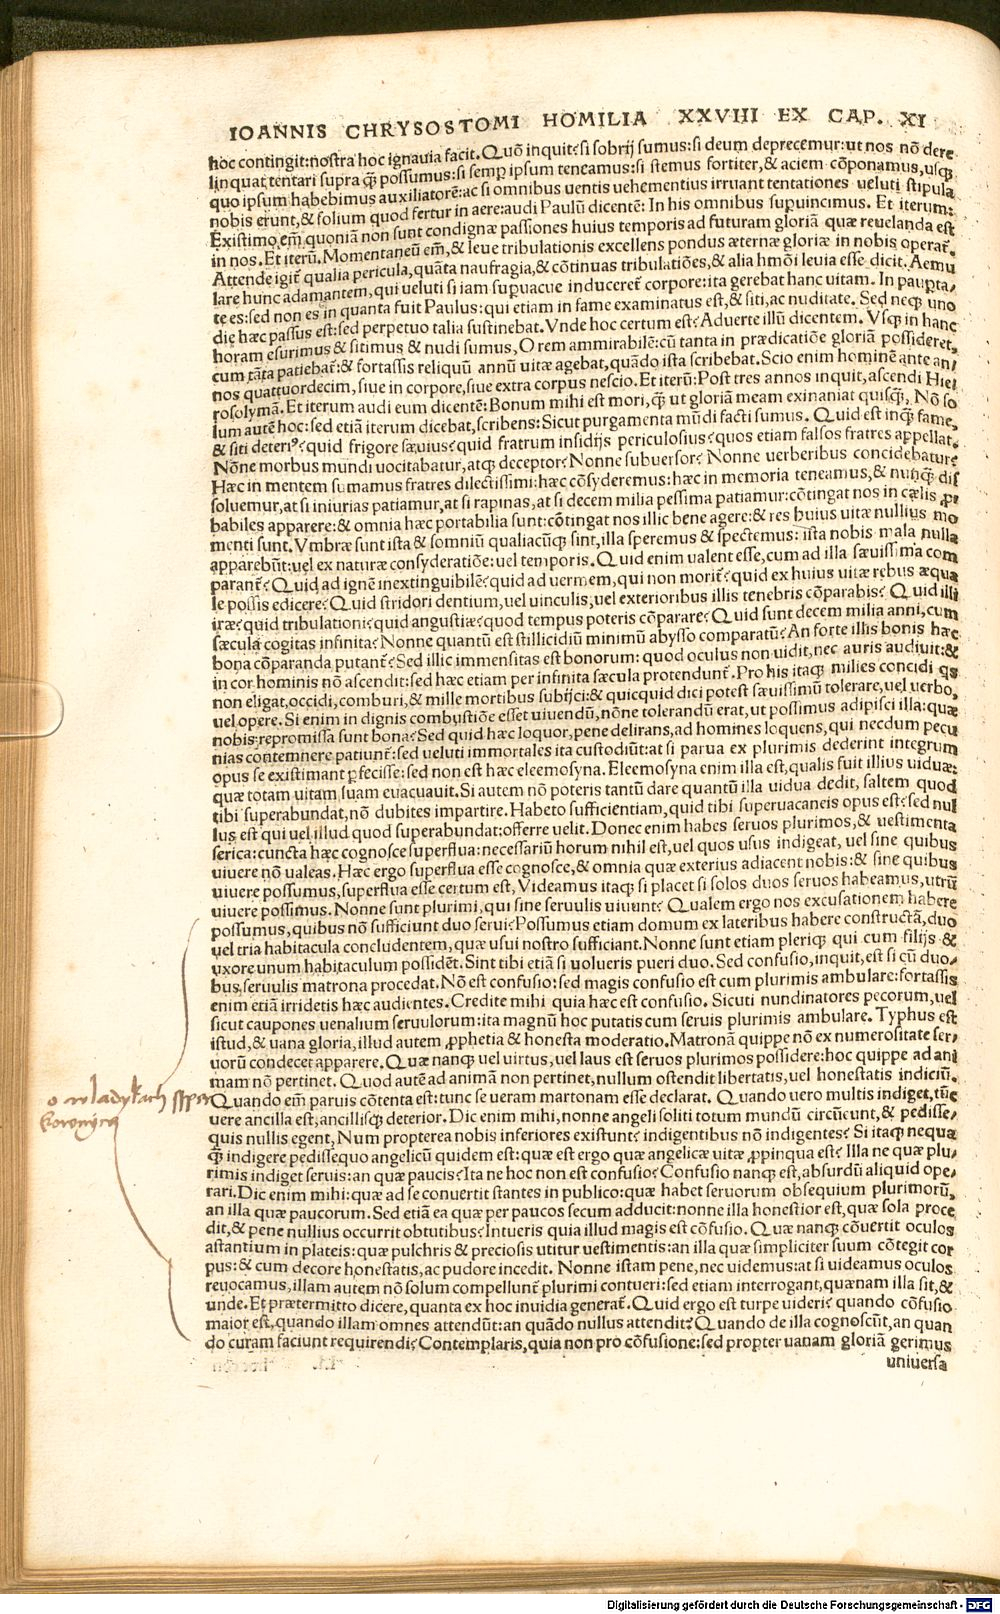 IOANNIS CHRYSOSTOMI HOMILIA XXVIII EX CAP. XI
hoc contingit:nostra hoc ignavia facit. Quõ inquit?si sobrij sumus:si deum deprecemur:ut nos nõ dere
linquat tentari supra q̃ possumus:si semp ipsum teneamus:si stemus fortiter,& aciem cõponamus,usq;
quo ipsum habebimus auxiliatorẽ:ac si omnibus uentis uehementius irruant tentationes ueluti stipula
nobis erunt,& folium quod fertur in aere:audi Paulũ dicentẽ: In his omnibus supuincimus. Et iterum:
Existimo em̃ quoniã non sunt condignæ passiones huius temporis ad futuram gloriã quæ reuelanda est
in nos. Et iterũ. Momentaneũ em̃,& leue tribulationis excellens pondus æternæ gloriæ in nobis operat̃.
Attende igit̃ qualia pericula,quãta naufragia,& cõtinuas tribulatiões,& alia hmõi leuia esse dicit. Aemu
lare hunc adamantem,qui ueluti si iam supuacue induceret̃ corpore:ita gerebat hanc uitam. In paupta/
te es:sed non es in quanta fuit Paulus:qui etiam in fame examinatus est,& siti,ac nuditate. Sed neq; uno
die hæc passus est:sed perpetuo talia sustinebat. Vnde hoc certum est? Aduerte illũ dicentem. Vsq; in hanc
horam esurimus & sitimus & nudi sumus, O rem ammirabilẽ:cũ tanta in prædicatiõe gloriã possideret,
cum tãta patiebat̃:& fortassis reliquũ annũ uitæ agebat,quãdo ista scribebat. Scio enim hominẽ ante an/
nos quattuordecim,siue in corpore,siue extra corpus nescio. Et iterũ:Post tres annos inquit,ascendi Hie/
rosolymã. Et iterum audi eum dicentẽ:Bonum mihi est mori,q̃ ut gloriã meam exinaniat quisq;, Nõ so
lum autẽ hoc: sed etiã iterum dicebat,scribens:Sicut purgamenta mũdi facti sumus. Quid est inq̃ fame,
& siti deteri9?quid frigore sæuius?quid fratrum insidijs periculosius?quos etiam falsos fratres appellat.
Nõne morbus mundi uocitabatur,atq; deceptor? Nonne subuersor? Nonne uerberibus concidebatur?
Hæc in mentem sumamus fratres dilectissimi:hæc cõsyderemus:hæc in memoria teneamus,& nunq̃ dis
soluemur,at si iniurias patiamur,at si rapinas,at si decem milia pessima patiamur:cõtingat nos in cælis ꝓ/
babiles apparere:& omnia hæc portabilia sunt:cõtingat nos illic bene agere:& res huius uitæ nullius mo
menti sunt. Vmbræ sunt ista & somniũ qualiacũq; sint,illa speremus & spectemus: ista nobis mala nulla
apparebũt:uel ex naturæ consyderatiõe:uel temporis. Quid enim ualent esse,cum ad illa sæuissima com
parant̃? Quid ad ignẽ inextinguibilẽ?quid ad uermem,qui non morit̃?quid ex huius uitæ rebus æqua
le possis edicere? Quid stridori dentium,uel uinculis,uel exterioribus illis tenebris cõparabis? Quid illi
iræ?quid tribulationi?quid angustiæ?quod tempus poteris cõparare? Quid sunt decem milia anni,cum
sæcula cogitas infinita? Nonne quantũ est stillicidiũ minimũ abysso comparatũ? An forte illis bonis hæc
bona cõparanda putant̃?Sed illic immensitas est bonorum: quod oculus non uidit,nec auris audiuit:&
in cor hominis nõ ascendit:sed hæc etiam per infinita sæcula protendunt̃. Pro his itaq; milies concidi qs
non eligat,occidi,comburi,& mille mortibus subijci:& quicquid dici potest sæuissimũ tolerare,uel uerbo,
uel opere. Si enim in dignis combustiõe esset uiuendũ,nõne tolerandũ erat,ut possimus adipisci illa:quæ
nobis repromissa sunt bona?Sed quid hæc loquor,pene delirans,ad homines loquens,qui necdum pecu
nias contemnere patiunt̃:sed ueluti immortales ita custodiũt:at si parua ex plurimis dederint integrum
opus se existimant pfecisse:sed non est hæc eleemosyna. Eleemosyna enim illa est,qualis fuit illius uiduæ:
quæ totam uitam suam euacuauit. Si autem nõ poteris tantũ dare quantũ illa uidua dedit, saltem quod
tibi superabundat,nõ dubites impartire. Habeto sufficientiam,quid tibi superuacaneis opus est?sed nul
lus est qui uel illud quod superabundat:offerre uelit. Donec enim habes seruos plurimos,& uestimenta
serica:cuncta hæc cognosce superflua:necessariũ horum nihil est,uel quos usus indigeat, uel sine quibus
uiuere nõ ualeas. Hæc ergo superflua esse cognosce,& omnia quæ exterius adiacent nobis:& sine quibus
uiuere possumus,superflua esse certum est, Videamus itaq; si placet si solos duos seruos habeamus,utrũ
uiuere possimus. Nonne sunt plurimi, qui sine seruulis uiuunt? Qualem ergo nos excusationem habere
possumus,quibus nõ sufficiunt duo serui?Possumus etiam domum ex lateribus habere constructã,duo
uel tria habitacula concludentem,quæ usui nostro sufficiant. Nonne sunt etiam pleriq; qui cum filijs &
uxore unum habitaculum possidẽt. Sint tibi etiã si uolueris pueri duo. Sed confusio,inquit,est si cũ duo/
bus seruulis matrona procedat. Nõ est confusio:sed magis confusio est cum plurimis ambulare:fortassis
enim etiã irridetis hæc audientes. Credite mihi quia hæc est confusio. Sicuti nundinatores pecorum,uel
sicut caupones uenalium seruulorum:ita magnũ hoc putatis cum seruis plurimis ambulare. Typhus est
istud,& uana gloria,illud autem ꝓphetia & honesta moderatio. Matronã quippe nõ ex numerositate ser/
uorũ condecet apparere. Quæ nanq; uel uirtus,uel laus est seruos plurimos possidere:hoc quippe ad ani
mam nõ pertinet. Quod autẽ ad animã non pertinet,nullum ostendit libertatis,uel honestatis indiciũ.
Quando em̃ paruis cõtenta est:tunc se ueram martonam esse declarat. Quando uero multis indiget,tũc
uere ancilla est,ancillisq; deterior. Dic enim mihi,nonne angeli soliti totum mundũ circũeunt,& pedisse/
quis nullis egent, Num propterea nobis inferiores existunt?indigentibus nõ indigentes? Si itaq; nequa
q̃ indigere pedissequo angelicũ quidem est:quæ est ergo quæ angelicæ uitæ ꝓpinqua est? Illa ne quæ plu/
rimis indiget seruis:an quæ paucis? Ita ne hoc non est confusio? Confusio nanq; est,absurdũ aliquid ope/
rari. Dic enim mihi:quæ ad se conuertit stantes in publico:quæ habet seruorum obsequium plurimorũ,
an illa quæ paucorum. Sed etiã ea quæ per paucos secum adducit:nonne illa honestior est,quæ sola proce
dit,& pene nullius occurrit obtutibus? Intueris quia illud magis est cõfusio. Quæ nanq; cõuertit oculos
astantium in plateis:quæ pulchris & preciosis utitur uestimentis:an illa quæ simpliciter suum cõtegit cor
pus:& cum decore honestatis,ac pudore incedit. Nonne istam pene,nec uidemus:at si uideamus oculos
reuocamus,illam autem nõ solum compellunt̃ plurimi contueri:sed etiam interrogant,quænam illa sit,&
unde. Et prætermitto dicere,quanta ex hoc inuidia generat̃. Quid ergo est turpe uideri? quando cõfusio
maior est,quando illam omnes attendũt:an quãdo nullus attendit? Quando de illa cognoscũt,an quan
do curam faciunt requirendi? Contemplaris,quia non pro cõfusione:sed propter uanam gloriã gerimus
universa
Digitalisierung gefördert durch die Deutsche Forschungsgemeinschaft - DFG